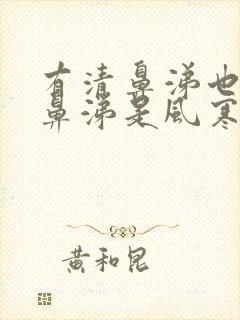 有清鼻涕也
鼻涕是風寒
黃和昆